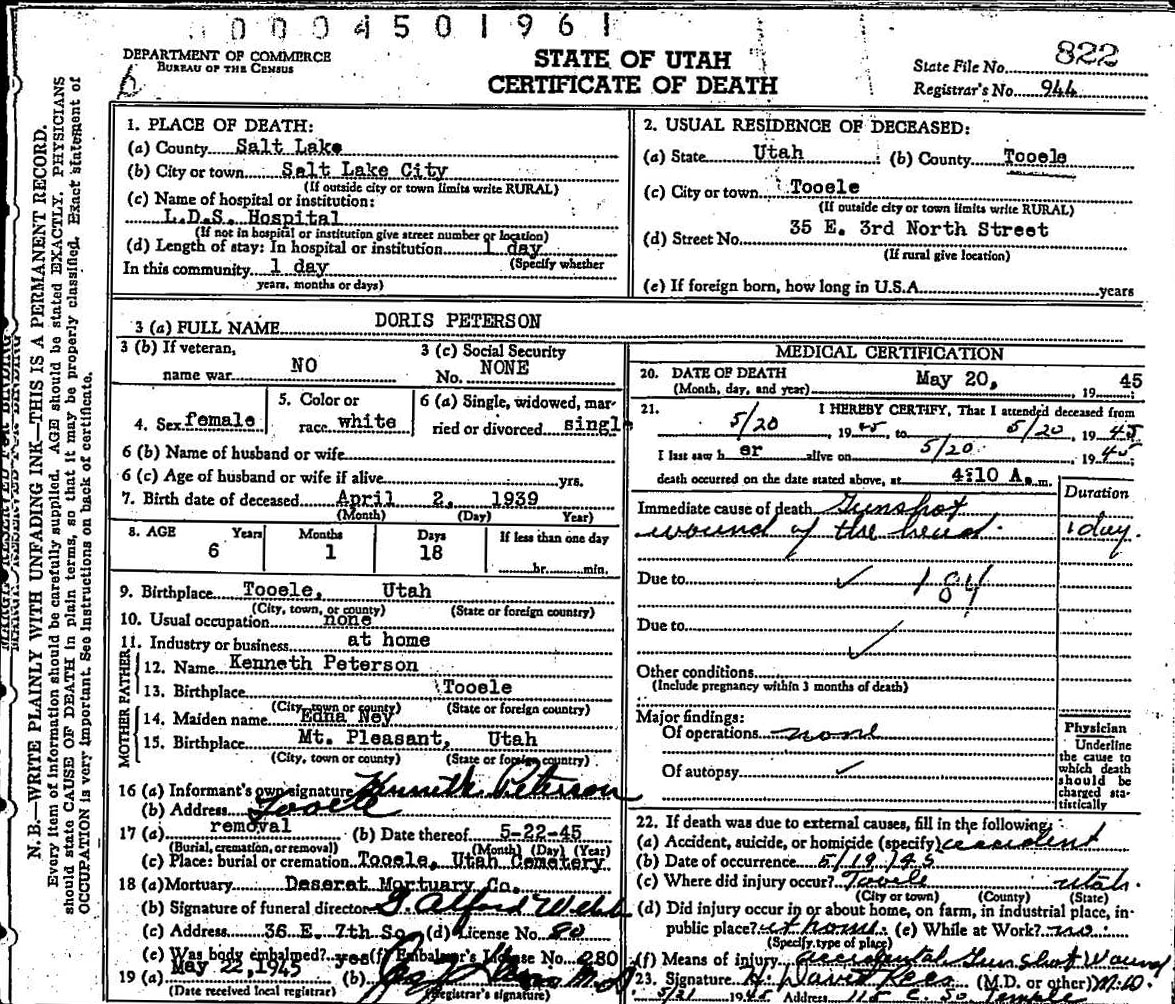 0004501961
DEPARTMENT OF COMMERCE
BUREAU OF THE CENSUS
STATE OF UTAH
CERTIFICATE OF DEATH
State File No. 822
Registrar's No. 944
N. B.—WRITE PLAINLY WITH UNFADING INK—THIS IS A PERMANENT RECORD.
Every item of information should be carefully supplied. AGE should be stated EXACTLY. PHYSICIANS
should state CAUSE OF DEATH in plain terms, so that it may be properly classified. Exact statement of
OCCUPATION is very important. See instructions on back of certificate.
1. PLACE OF DEATH:
(a) County Salt Lake
(b) City or town Salt Lake City
(If outside city or town limits write RURAL)
(c) Name of hospital or institution:
L.D.S. Hospital
(If not in hospital or institution give street number or location)
(d) Length of stay: In hospital or institution 1 day
(Specify whether
In this community 1 day
years, months or days)
2. USUAL RESIDENCE OF DECEASED:
(a) State Utah (b) County Tooele
(c) City or town Tooele
(If outside city or town limits write RURAL)
(d) Street No. 35 E. 3rd North Street
(If rural give location)
(e) If foreign born, how long in U.S.A. years
3 (a) FULL NAME DORIS PETERSON
3 (b) If veteran,
name war NO
3 (c) Social Security
No. NONE
4. Sex female
5. Color or
race white
6 (a) Single, widowed, mar-
ried or divorced singl
6 (b) Name of husband or wife
6 (c) Age of husband or wife if alive yrs.
7. Birth date of deceased April 2, 1939
(Month) (Day) Year)
8. AGE Years Months Days If less than one day
6 1 18 hr. min.
9. Birthplace Tooele, Utah
(City, town, or county) (State or foreign country)
10. Usual occupation none
11. Industry or business at home
FATHER
12. Name Kenneth Peterson
13. Birthplace Tooele
(City, town or county) (State or foreign country)
MOTHER
14. Maiden name Edna Ney
15. Birthplace Mt. Pleasant, Utah
(City, town or county) (State or foreign country)
16 (a) Informant's own signature Kenneth Peterson
(b) Address Tooele
17 (a) removal (b) Date thereof 5-22-45
(Burial, cremation, or removal) (Month) (Day) (Year)
(c) Place: burial or cremation Tooele, Utah Cemetery
18 (a) Mortuary Deseret Mortuary Co.
(b) Signature of funeral director Alford Webb
(c) Address 36 E. 7th So (d) License No 80
(e) Was body embalmed? yes (f) Embalmer's License No 280
19 (a) May 22, 1945 (b) M.D
(Date received local registrar) (Registrar's signature)
MEDICAL CERTIFICATION
20. DATE OF DEATH
(Month, day, and year) May 20, 19 45
21. I HEREBY CERTIFY, That I attended deceased from
5/20, 1945, to 5/20, 1945
I last saw h er alive on 5/20, 1945
death occurred on the date stated above, at 4:10 A. m.
Duration
Immediate cause of death Gunshot
wound of the head. 1 day.
Due to ✓ 184
Due to
✓
Other conditions
(Include pregnancy within 3 months of death)
Major findings:
Of operations none
Of autopsy ✓
Physician
Underline
the cause to
which death
should be
charged sta-
tistically
22. If death was due to external causes, fill in the following:
(a) Accident, suicide, or homicide (specify) accident
(b) Date of occurrence 5/19/45
(c) Where did injury occur? Tooele Utah.
(City or town) (County) (State)
(d) Did injury occur in or about home, on farm, in industrial place, in-
public place? at home. (e) While at Work? no.
(Specify type of place)
(f) Means of injury accidental Gunshot Wound
23. Signature David (M.D. or other) M.D.
5/21 1945 Address 115 So Temple